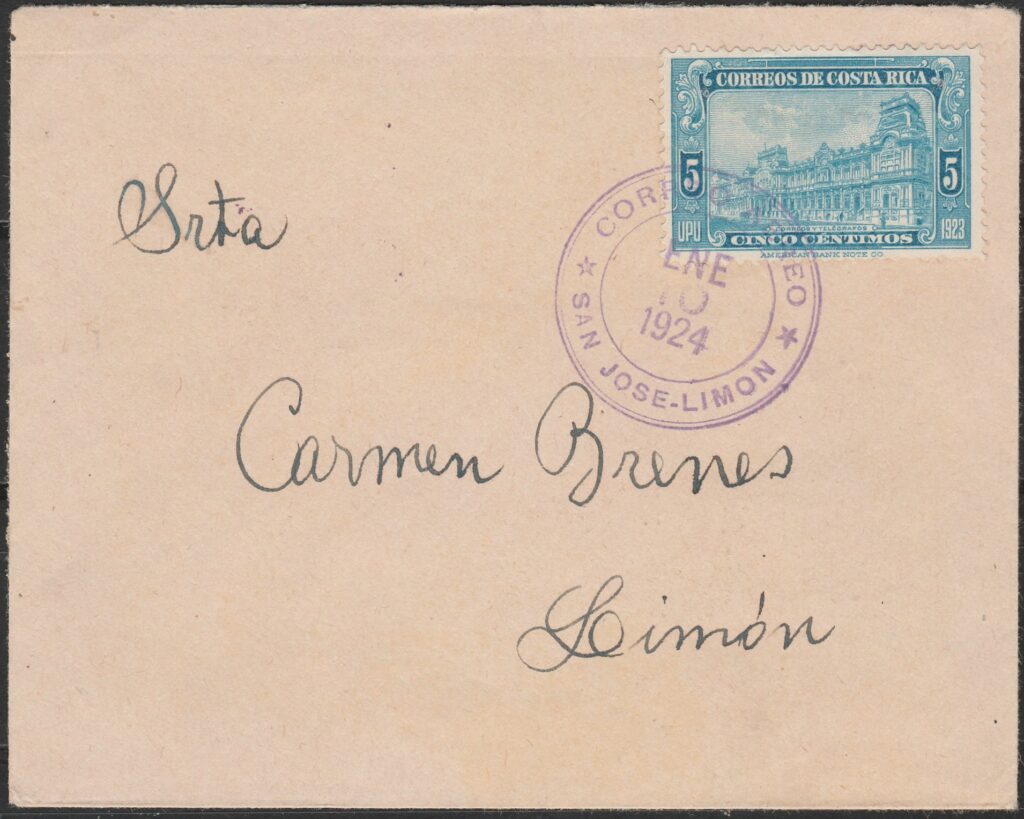 CORREOS DE COSTA RICA
5 5
CORREOS Y TELÉGRAFOS
UPU CINCO CÉNTIMOS 1923
AMERICAN BANK NOTE CO.
CORREO AEREO
ENE
10
1924
SAN JOSE-LIMON
Srta
Carmen Brenes
Limón